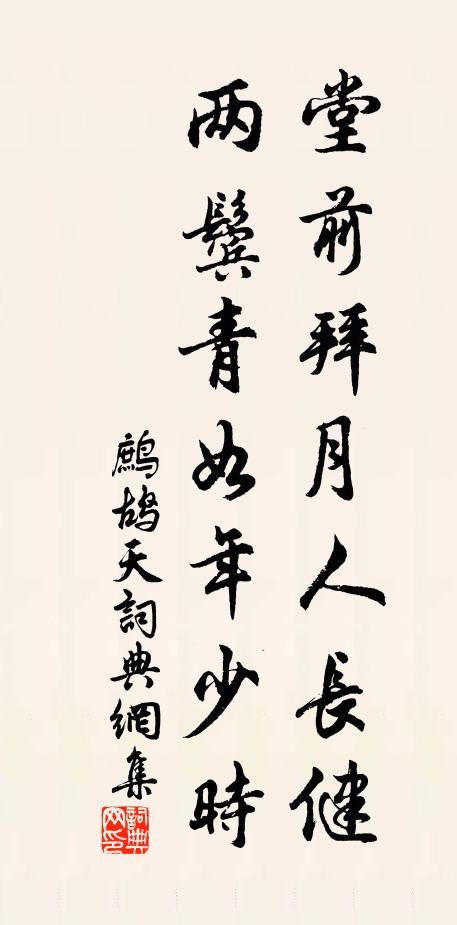 堂前拜月人長健
两鬢青如年少時
鷓鴣天詞典網集
詞典
网印